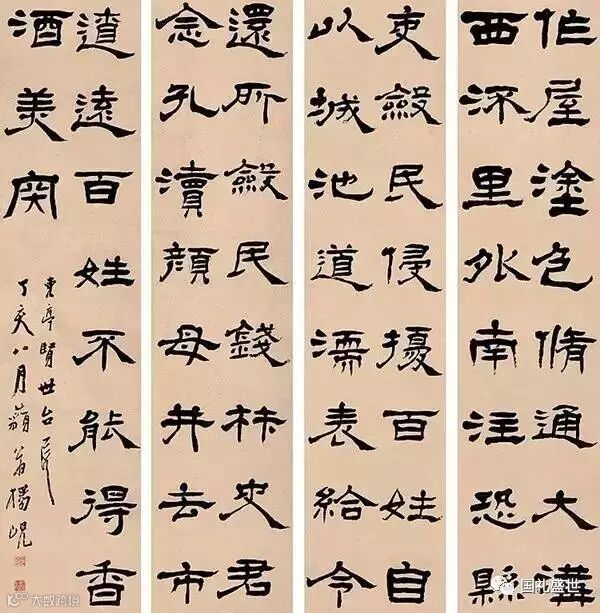 作屋塗色脩通大溝
西流里外南注恐縣
吏斂民侵擾百姓自
以城池道濡麦給令
還所斂民錢材史君
念孔瀆顏母井去市
遼遠百姓不能得香
酒美肉
東亭賢世台屬
丁亥八月藐翁楊峴
大数跨境
国礼盛世